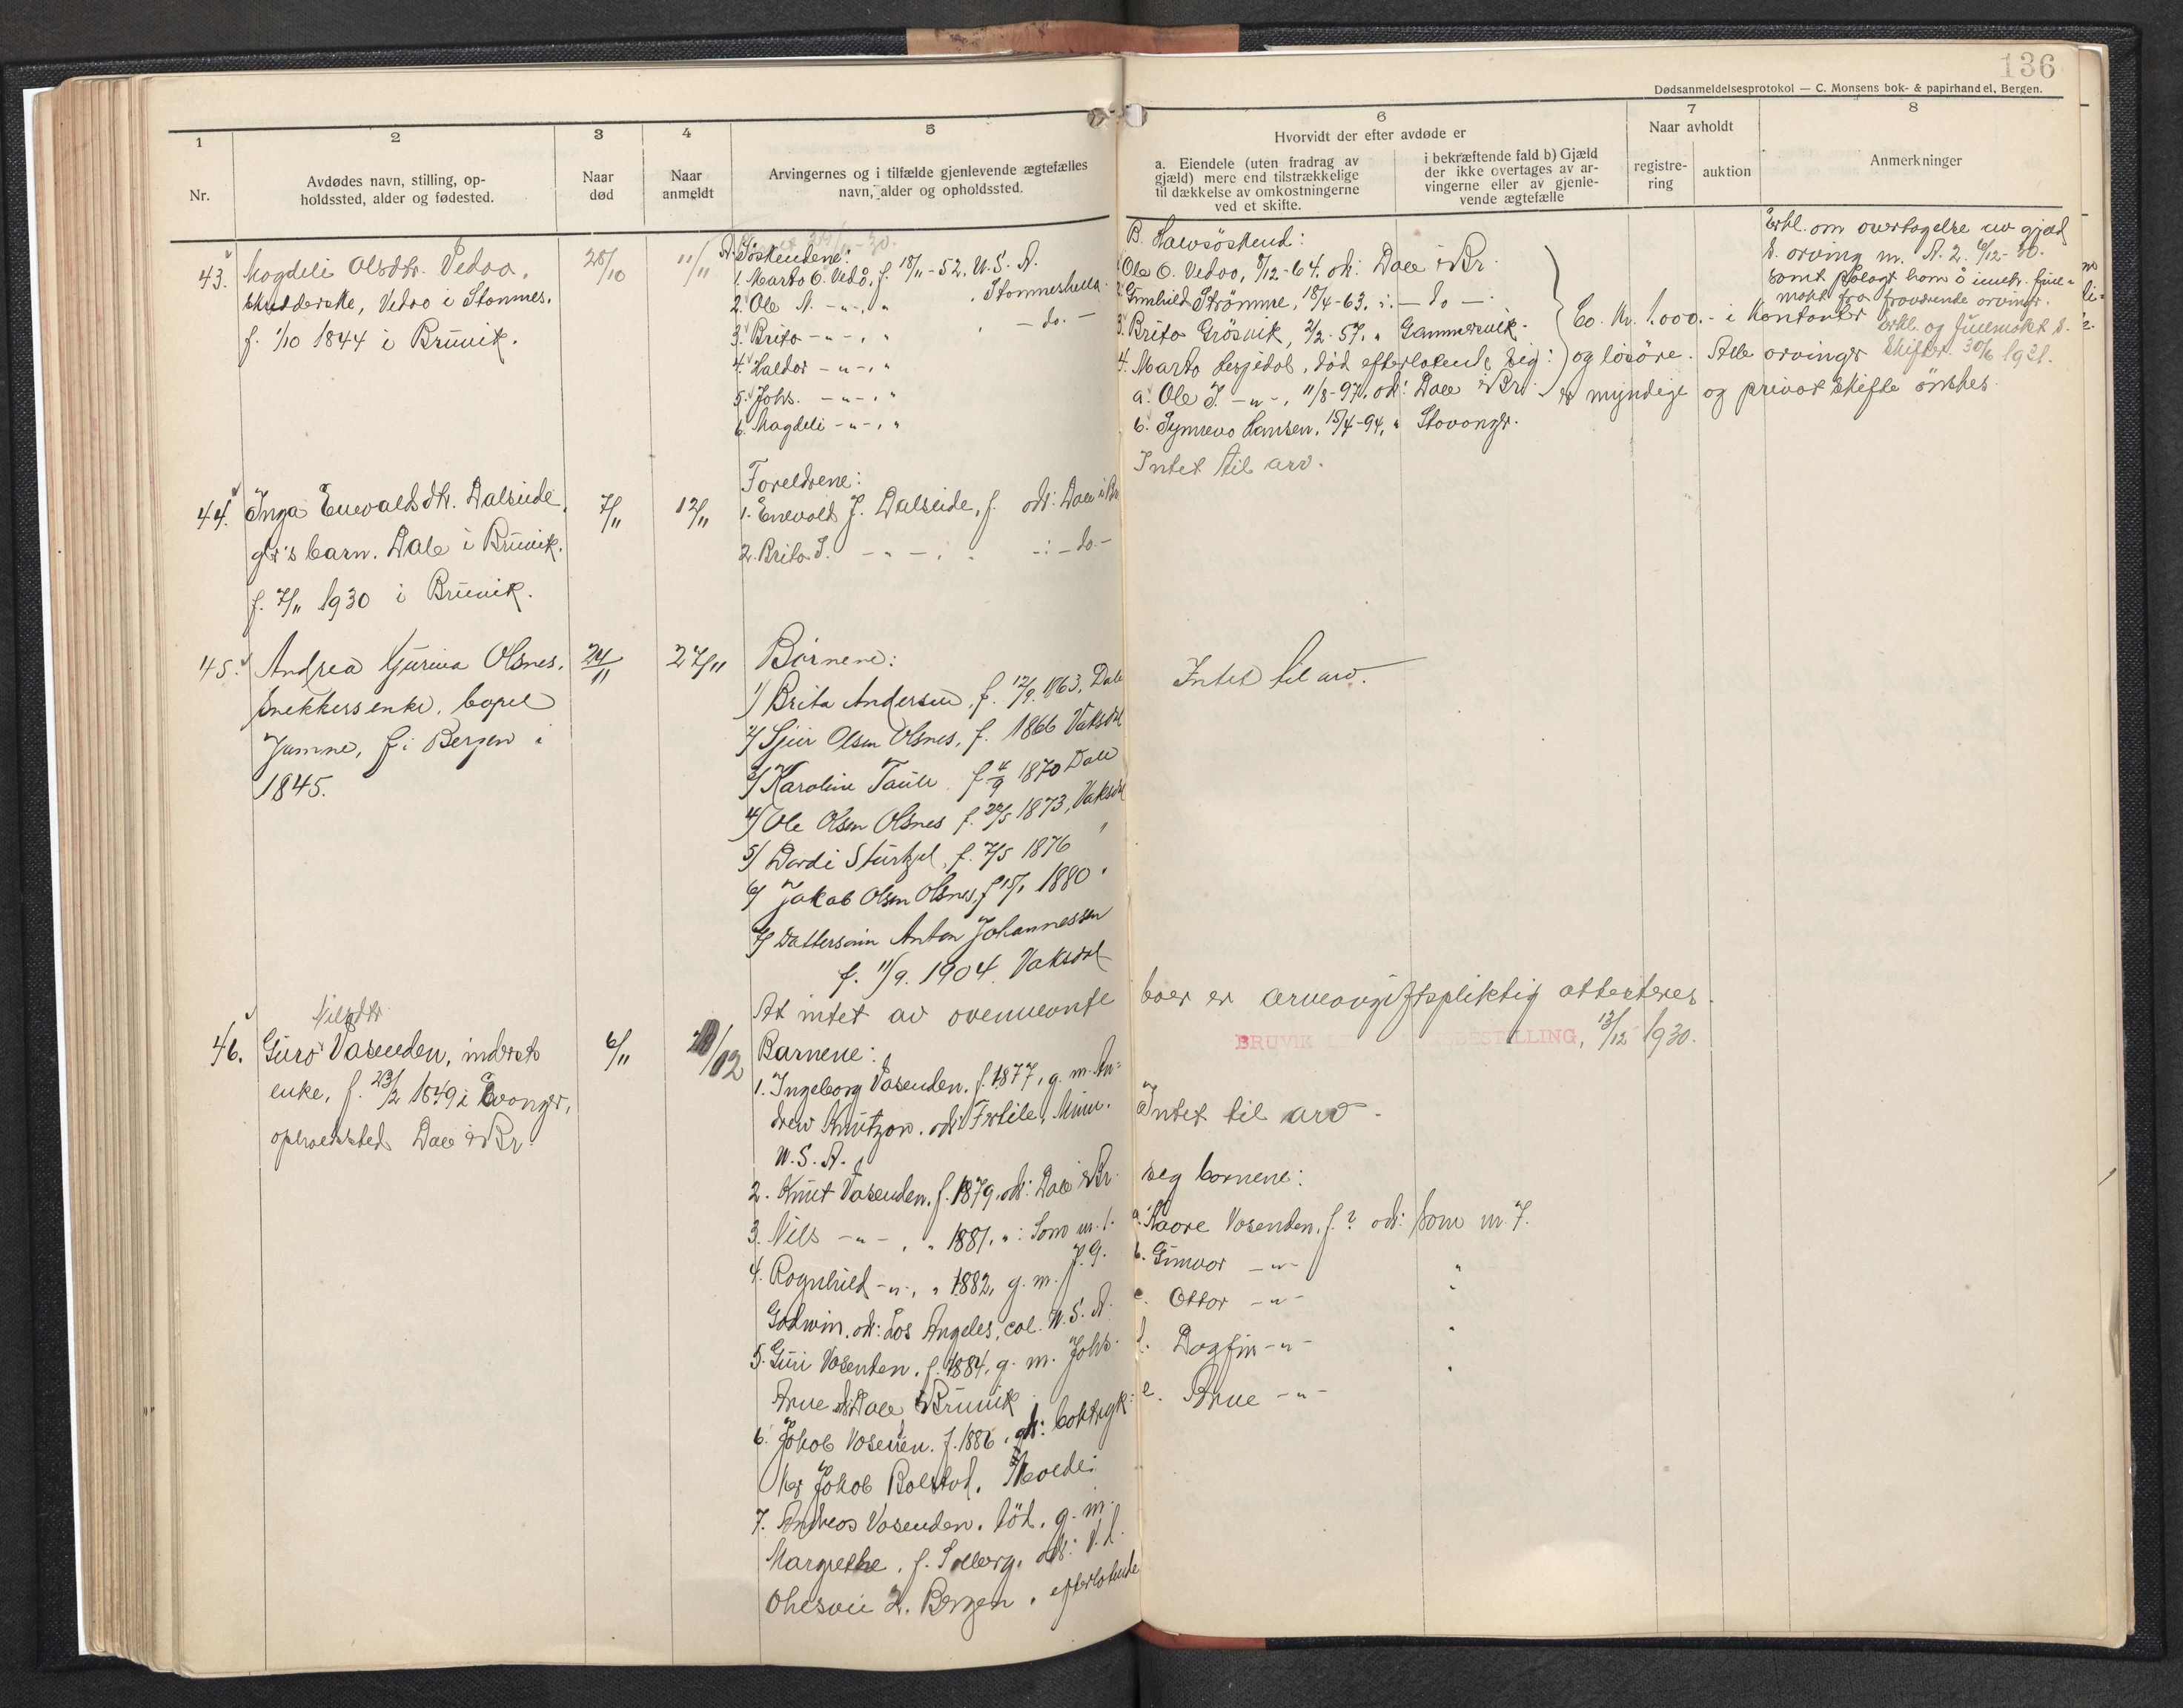 136
Dødsanmeldelsesprotokol — C. Monsens bok- & papirhandel, Bergen.
1
Nr.
2
Avdødes navn, stilling, op-
holdssted, alder og fødested.
3
Naar
død
4
Naar
anmeldt
5
Arvingernes og i tilfælde gjenlevende ægtefælles
navn, alder og opholdssted.
6
Hvorvidt der efter avdøde er
a. Eiendele (uten fradrag av
gjæld) mere end tilstrækkelige
til dækkelse av omkostningerne
ved et skifte.
i bekræftende fald b) Gjæld
der ikke overtages av ar-
vingerne eller av gjenle-
vende ægtefælle
7
Naar avholdt
registre-
ring
auktion
8
Anmerkninger
43. Magdeli Olsdtr. Vedaa,
Vedaa i Stammes.
f. 1/10 1844 i Bruvik.
28/10
11/11
A. Söskendene:
1. Marta O. Vedå, f. 18/11-52, U.S.A.
2. Ole A. -"-, " , Stammeshella
3. Brita -"-, " , - do. -
4. Haldor -"-, "
5. Johs. -"-, "
6. Magdeli -"-, "
B. Halvsöskend:
1. Ole O. Vedaa, 9/12-64, ok: Dale i Br.
2. Gunhild Strömme, 18/4-63, ": - do -
3. Brita Grösvik, 2/2-57, " Gammersvik.
4. Marta Hesjedal, död efterlatende sig:
a. Ole J. -"-, 11/8-97, ok: Dale i Br.
b. Synneva Hansen, 15/4-94, " Stavanger.
Ca. Kr. 1.000.- i kontanter
og lösöre. Alle arvinger
er myndige og privat skifte önskes.
Erkl. om overtagelse av gjæld
d. arving nr. A. 2. 6/12-30.
samt pålagt ham å innh. full-
makt fra fraværende arvinger.
Erkl. og fullmakt d.
Skifter. 30/6 1931.
44. Inga Enevaldsdtr. Dalseide,
barn. Dale i Bruvik.
f. 7/11 1930 i Bruvik.
7/11
12/11
Foreldrene:
1. Enevald J. Dalseide, f. ok: Dale i Br
2. Brita J. - " - , " -:- do. -
Intet til arv.
45. Andrea Gurina Olsnes,
snekkersenke, bopel
Jamne, f. i Bergen i
1845.
24/11
27/11
Børnene:
1) Brita Andersen, f. 12/9. 1863, Dale
2) Sjur Olsen Olsnes, f. 1866 Vaksdal
3) Karoline Taule f. 4/9 1870 Dale
4) Ole Olsen Olsnes f. 22/5 1873, Vaksdal
5) Dordi Sturtzel, f. 7/5 1876 "
6) Jakob Olsen Olsnes, f. 15/1 1880 "
7) Dattersönn Anton Johannessen
f. 11/9. 1904. Vaksdal
Intet til arv.
At intet av ovennevnte boer er arveavgiftspliktig attesteres.
BRUVIK LENSMANNSBESTILLING, 13/12 1930.
Nilsdtr
46. Guro Vasenden, inderst
enke, f. 23/2 1849 i Evanger,
opholdssted Dale i Br.
6/11
/12
Barnene:
1. Ingeborg Vasenden, f. 1877, g. m. An-
drew Knutzon, ok: Fertile, Minn.
U.S.A.
2. Knut Vasenden, f. 1879, ok: Dale i Br.
3. Nils -"-, " 1881, ": Som nr. 1.
4. Ragnhild -"-, " 1882, g. m. J. G.
Godwin, ok: Los Angeles, cal. U.S.A.
5. Guri Vasenden, f. 1884, g. m. Johs.
Arne ok: Dale i Bruvik
6. Jakob Vasenden. f. 1886, ok: boktryk-
ker Jakob Bolstad, Molde.
7. Andreas Vasenden, död, g. m.
Margrethe, f. Solberg, ok: V. d.
Ohesvei 2, Bergen, efterlatende
Intet til arv.
seg barnene:
a. Kaare Vasenden, f. ? ok: som nr. 7.
b. Gunvor -"- "
c. Ottar -"- "
d. Dagfin -"- "
e. Arne -"- "